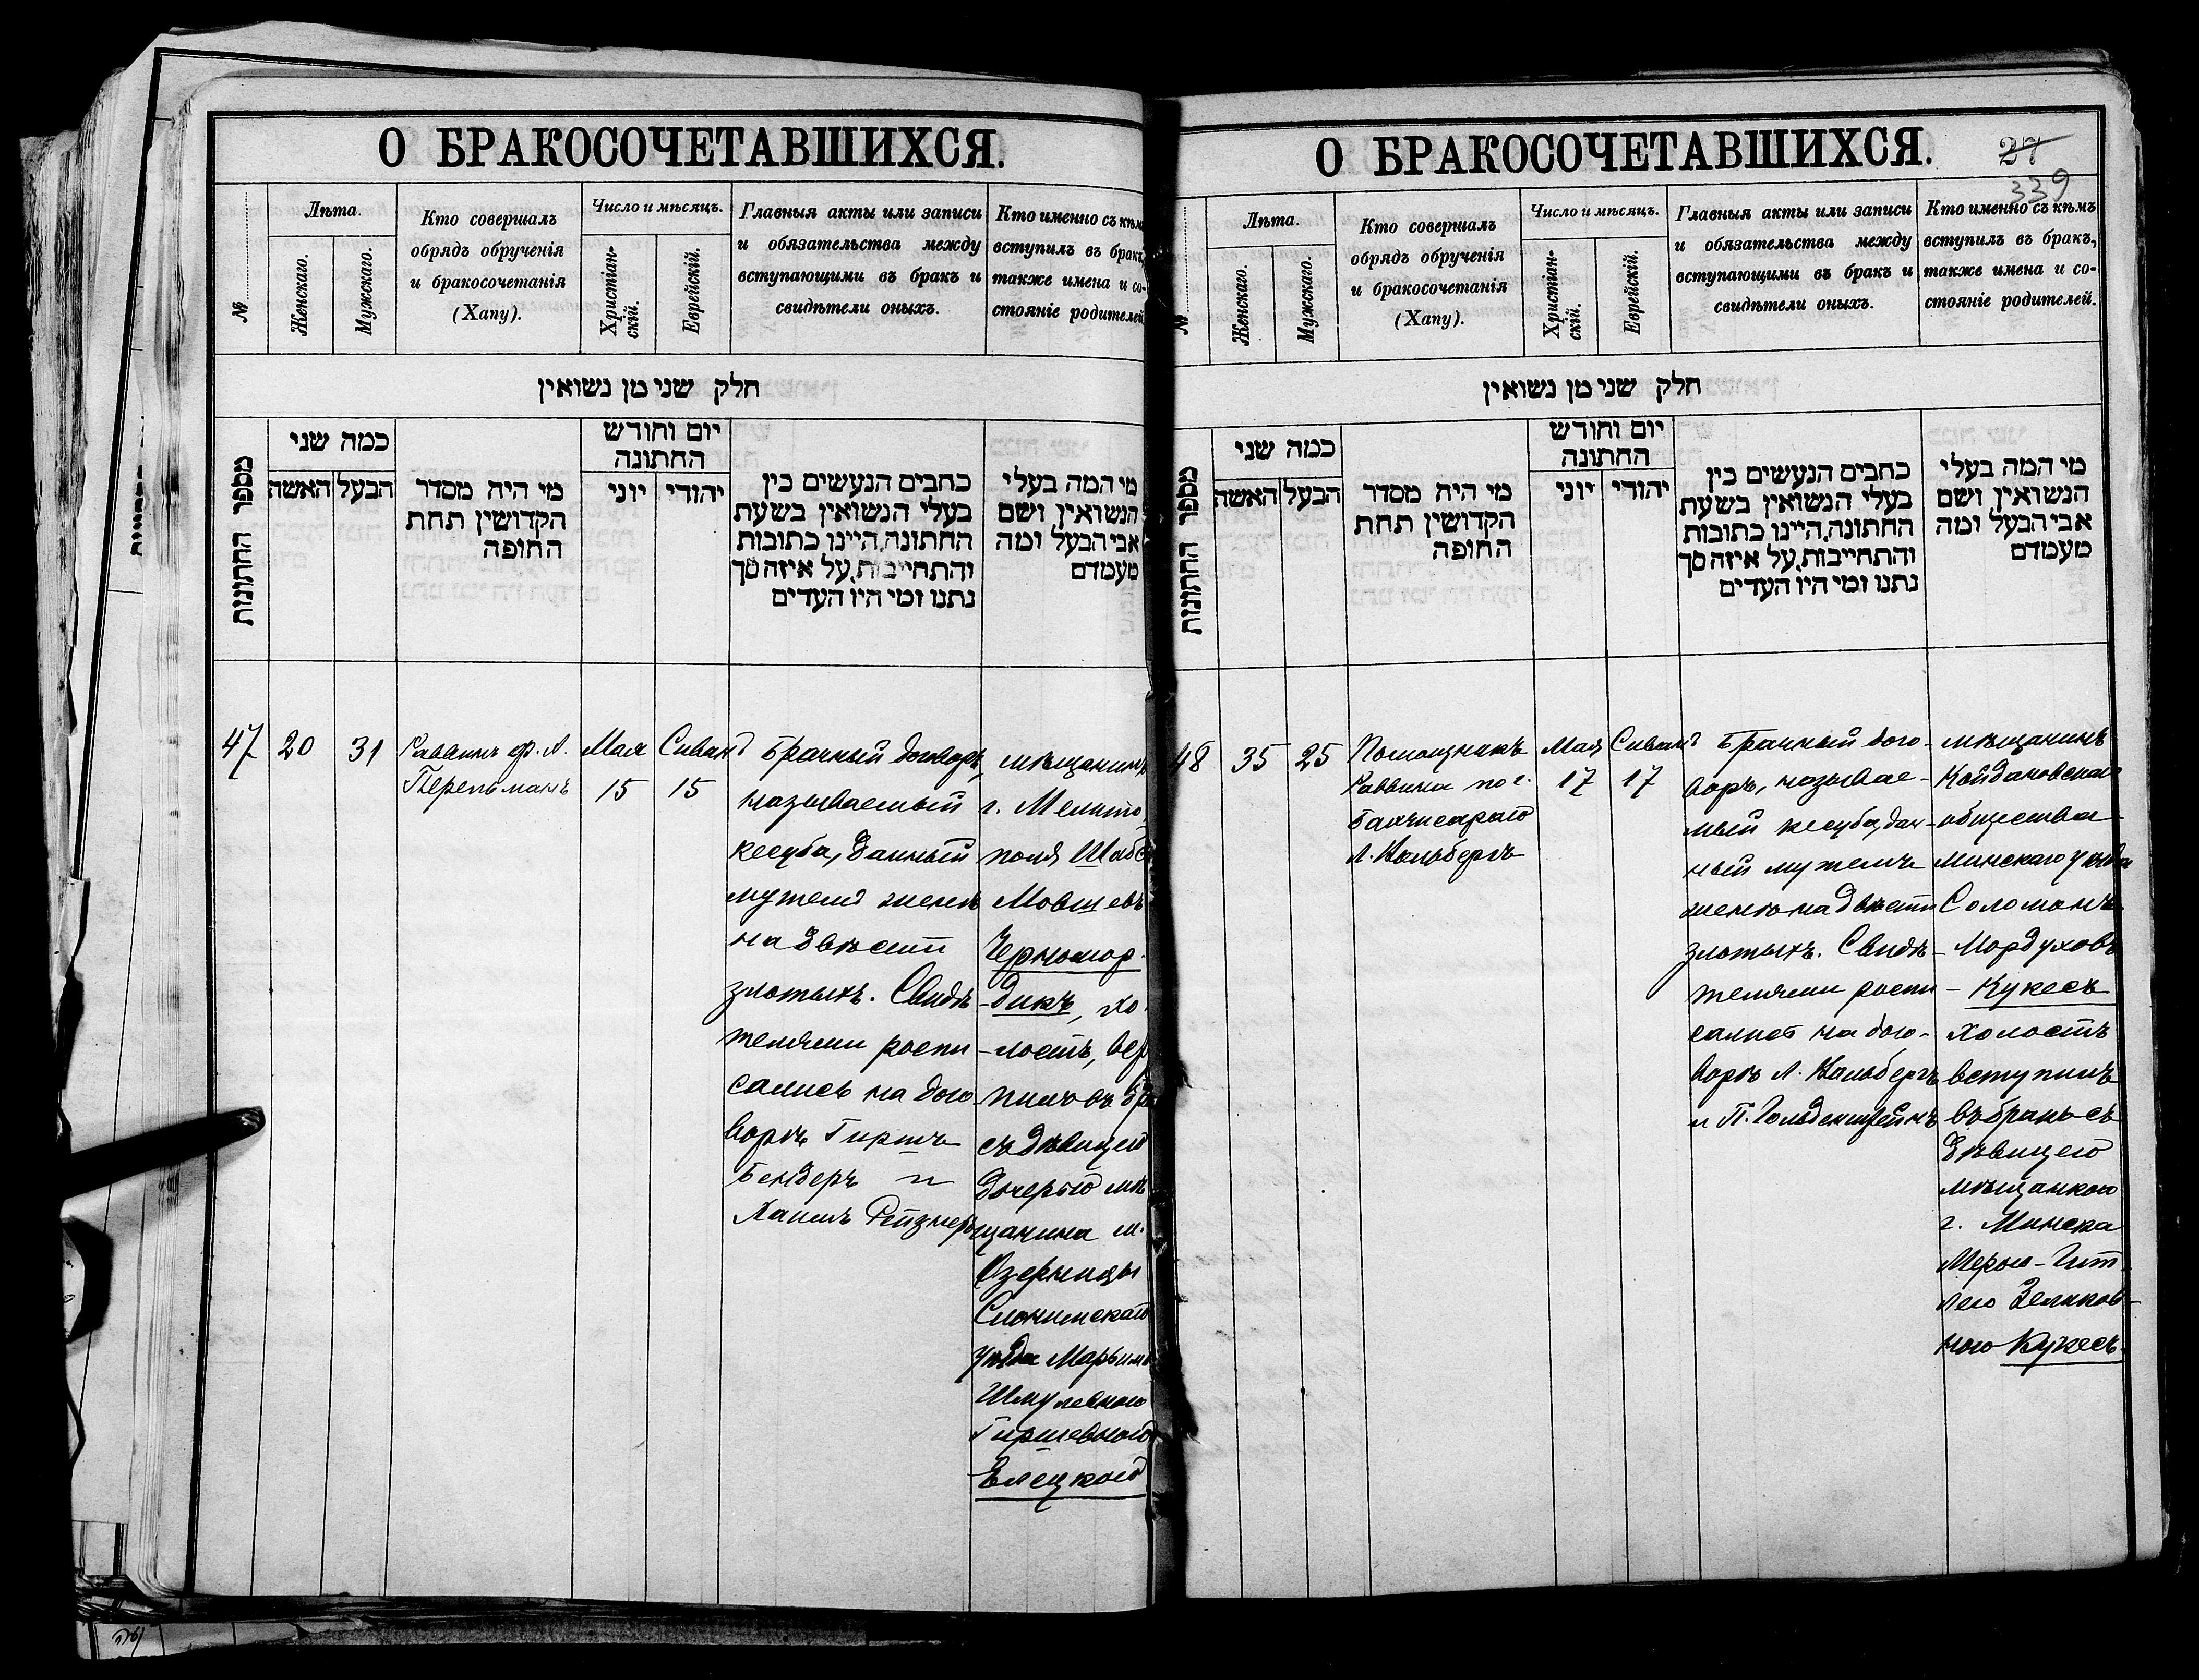 О БРАКОСОЧЕТАВШИХСЯ.
№
Лѣта.
Женскаго.
Мужскаго.
Кто совершалъ
обрядъ обрученія
и бракосочетанія
(Хапу).
Число и мѣсяцъ.
Христіан-
скій.
Еврейскій.
Главныя акты или записи
и обязательства между
вступающими въ бракъ и
свидѣтели оныхъ.
Кто именно съ кѣмъ
вступилъ въ бракъ,
также имена и со-
стояніе родителей
חלק שני מן נשואין
מספר החתונות
כמה שני
הבעל
האשה
מי היה מסדר
הקדושין תחת
החופה
יום וחודש
החתונה
יהודי
יוני
כתבים הנעשים בין
בעלי הנשואין בשעת
החתונה, היינו כתובות
והתחייבות, על איזה סך
נתנו ומי היו העדים
מי המה בעלי
הנשואין ושם
אבי הבעל ומה
מעמדם
47
20
31
Раввинъ ф. А.
Перельманъ
Мая
15
Сиванъ
15
Брачный договоръ,
называемый
кесуба, данный
мужемъ женѣ
на двѣсти
злотыхъ. Свидѣ-
телями роспи-
сались на дого-
ворѣ Гиршъ
Бендеръ и
Хаимъ Рейзнеръ
мѣщанинъ
г. Мелито-
поля Шабс
Мовшевъ
Черномор-
дикъ, хо-
лостъ, вс
пилъ въ бра
съ дѣвицей
дочерью мѣ
щанина м.
Озерницы
Слонимскаго
уѣзда Марьим
Шмулевною
Гиршевною
Елецкой
О БРАКОСОЧЕТАВШИХСЯ.
27
339
№
Лѣта.
Женскаго.
Мужскаго.
Кто совершалъ
обрядъ обрученія
и бракосочетанія
(Хапу).
Число и мѣсяцъ.
Христіан-
скій.
Еврейскій.
Главныя акты или записи
и обязательства между
вступающими въ бракъ и
свидѣтели оныхъ.
Кто именно съ кѣмъ
вступилъ въ бракъ,
также имена и со-
стояніе родителей.
חלק שני מן נשואין
מספר החתונות
כמה שני
הבעל
האשה
מי היה מסדר
הקדושין תחת
החופה
יום וחודש
החתונה
יהודי
יוני
כתבים הנעשים בין
בעלי הנשואין בשעת
החתונה, היינו כתובות
והתחייבות, על איזה סך
נתנו ומי היו העדים
מי המה בעלי
הנשואין ושם
אבי הבעל ומה
מעמדם
48
35
25
Помощникъ
Раввина по г.
Бахчисараю
Л. Вольбергъ
Мая
17
Сиванъ
17
Брачный дого-
воръ, называе-
мый кесуба, дан-
ный мужемъ
женѣ на двѣсти
злотыхъ. Свидѣ-
телями роспи-
сались на дого-
ворѣ Л. Вольбергъ
и П. Гольденштейнъ
мѣщанинъ
Койдановскаго
общества
Минскаго уѣзда
Соломонъ
Мордуховъ
Кукесъ
холостъ
вступилъ
въ бракъ съ
дѣвицею
мѣщанкою
г. Минска
Мерою-Гит-
лею Зеликов-
ною Кукесъ.